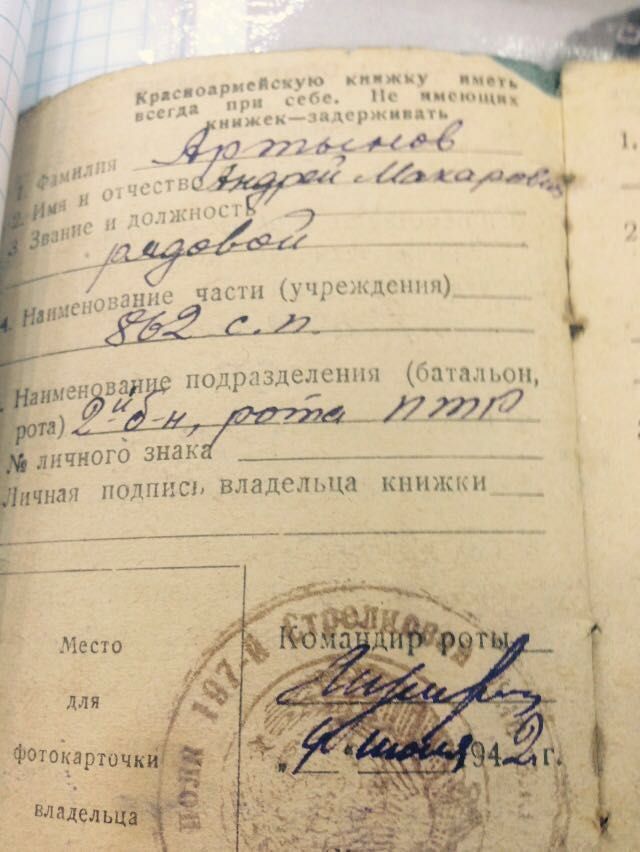 Красноармейскую книжку иметь
всегда при себе. Не имеющих
книжек—задерживать
1. Фамилия Артынов
2. Имя и отчество Андрей Макарович
3. Звание и должность
рядовой
4. Наименование части (учреждения)
862 с.п.
Наименование подразделения (батальон,
рота) 2-й б-н, рота ПТР
№ личного знака
Личная подпись владельца книжки
Место
для
фотокарточки
владельца
Командир роты
197-й Стрелковой
„4“ 1942 г.
1.
2